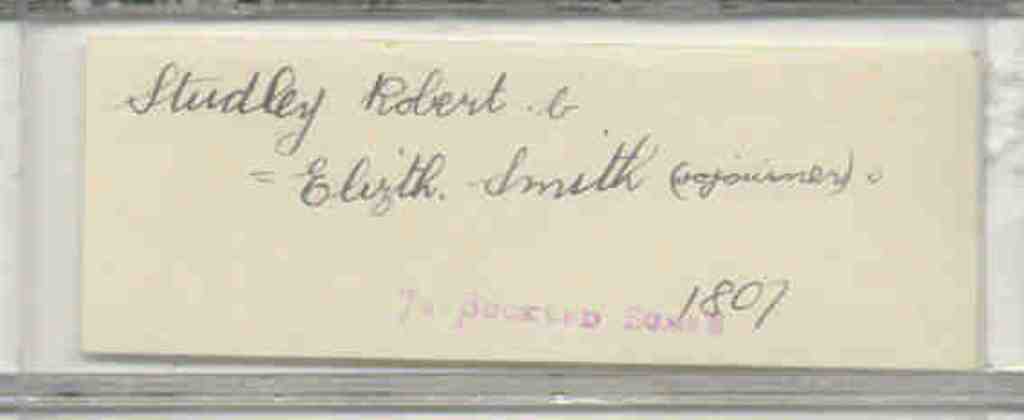 Studley Robert . b
= Elizth. Smith (sojourner).
1807